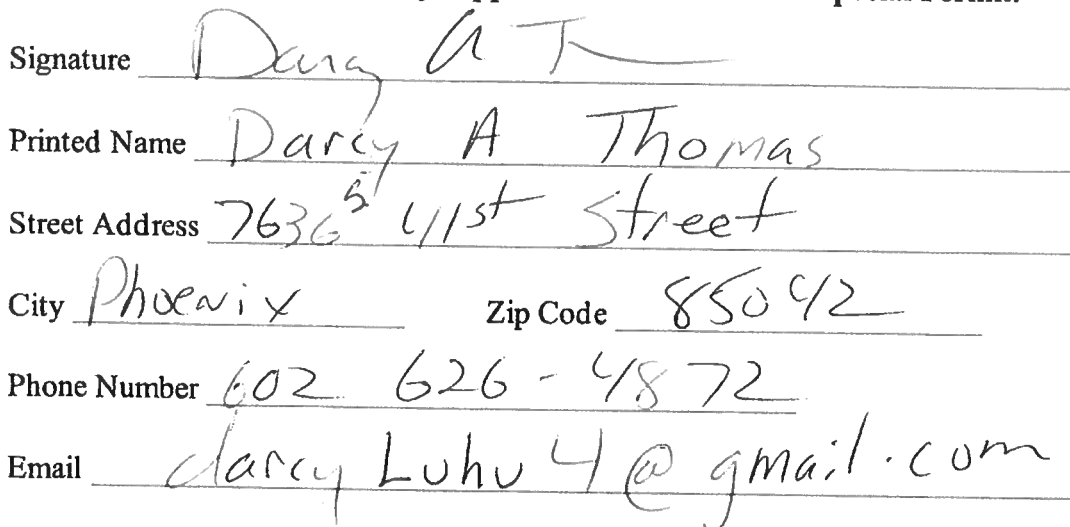 Signature Darcy A T
Printed Name Darcy A Thomas
Street Address 7636 S 41st Street
City Phoenix Zip Code 85042
Phone Number 602 626-4872
Email darcyLuhu4@gmail.com